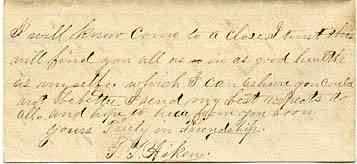 I will know Come to a close I trust this
will find you all as in as good health
as my self which I can ashure you could
not be better I send my best respects to
all and hope to hear from you soon
yours Truly in friendship.
Aiken